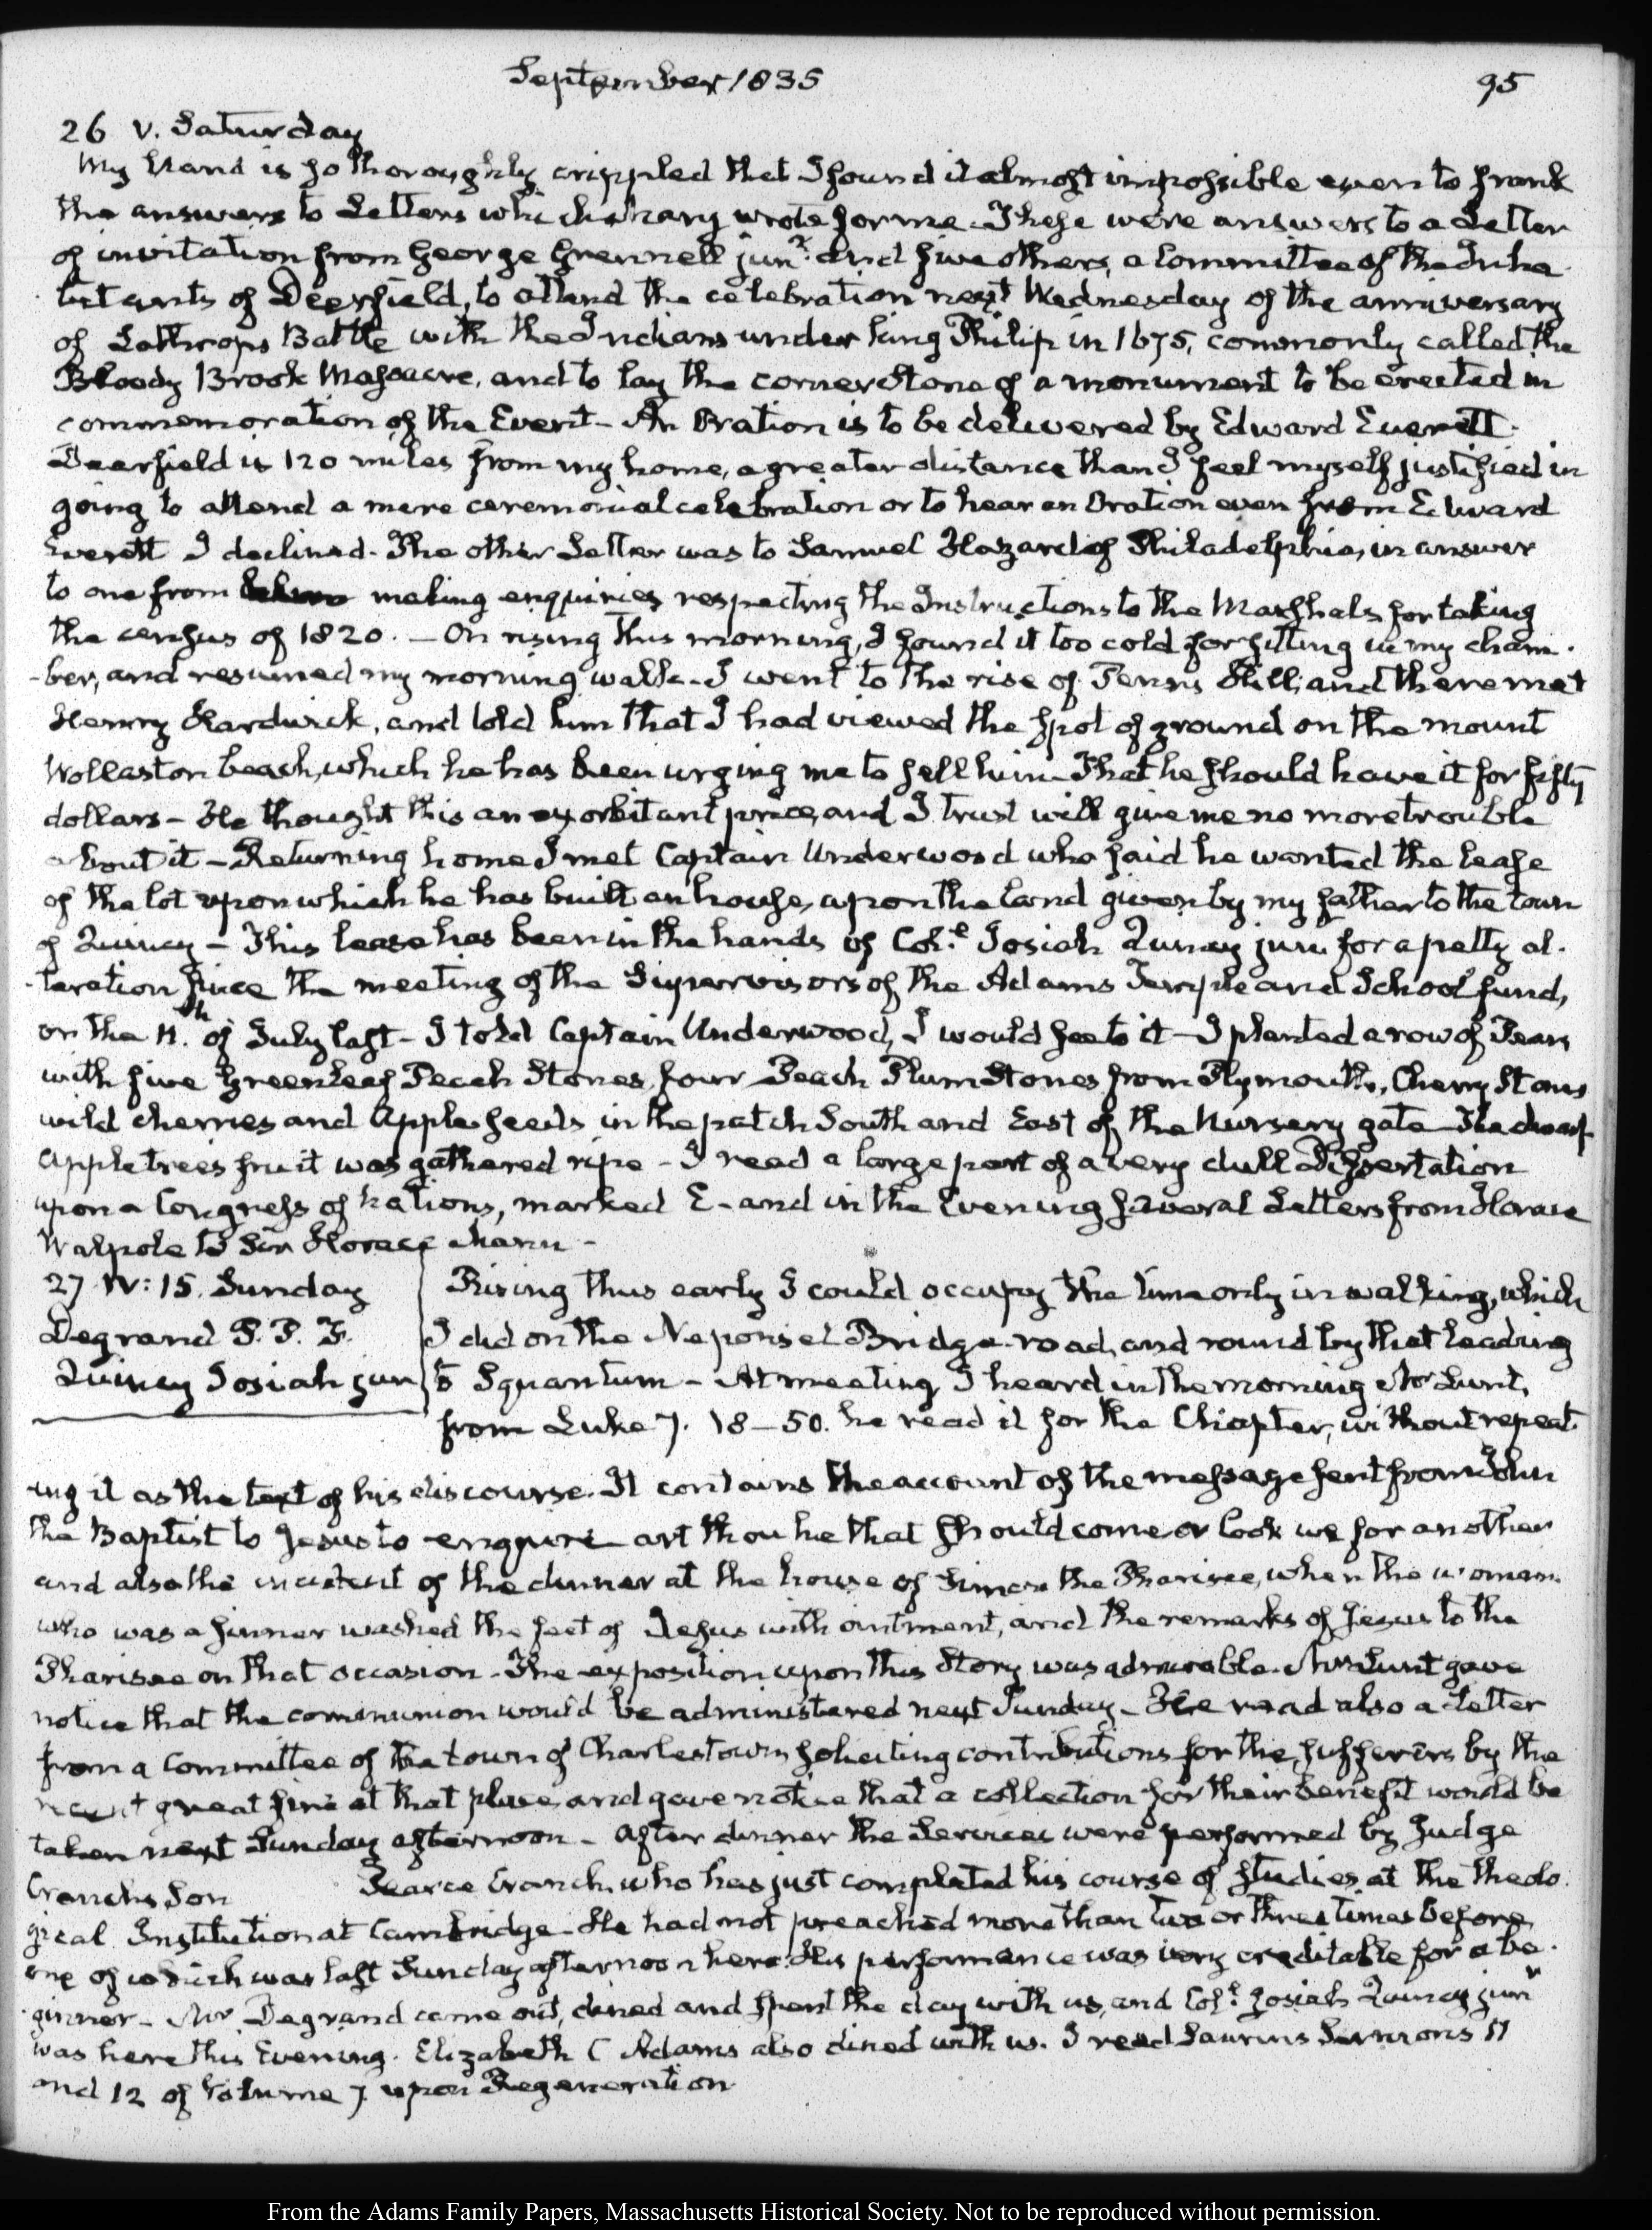 September 1835
95
26 V. Saturday
My hand is so thoroughly crippled that I found it almost impossible even to frank
the answers to Letters which Mary wrote for me. These were answers to a Letter
of invitation from George Grennell junr. and five others, a Committee of the Inha-
bitants of Deerfield, to attend the celebration next Wednesday of the anniversary
of Lothrops Battle with the Indians under king Philip in 1675, commonly called the
Bloody Brook Massacre, and to lay the corner Stone of a monument to be erected in
commemoration of the Event - An Oration is to be delivered by Edward Everett.
Deerfield is 120 miles from my home, a greater distance than I feel myself justified in
going to attend a mere ceremonial celebration or to hear an Oration even from Edward
Everett I declined. The other Letter was to Samuel Hazard of Philadelphia, in answer
to one from making enquiries respecting the Instructions to the Marshals for taking
the census of 1820. - On rising this morning, I found it too cold for sitting in my cham-
-ber, and resumed my morning walk. I went to the rise of Penns Hill; and there met
Henry Hardwick, and told him that I had viewed the spot of ground on the mount
Wollaston beach, which he has been urging me to sell him - That he should have it for fifty
dollars - He thought this an exorbitant price, and I trust will give me no more trouble
about it - Returning home I met Captain Underwood who said he wanted the lease
of the lot upon which he has built an house, upon the land given by my father to the town
of Quincy - This lease has been in the hands of Col.l Josiah Quincy junr. for a petty al-
-teration since the meeting of the Supervisors of the Adams Temple and School fund,
on the 11.th of July last - I told Captain Underwood, I would see to it - I planted a row of Pears
with five Greenleaf Peach Stones, four Peach Plum Stones from Plymouth, Cherry Stones
wild cherries and Apple seeds in the patch South and East of the Nursery gate - The dwarf
Apple trees fruit was gathered ripe - I read a large part of a very dull Dissertation
upon a Congress of Nations, marked E - and in the Evening several Letters from Horace
Walpole to Sir Horace Mann -
27 IV: 15. Sunday
Degrand P. P. F.
Quincy Josiah jun
Rising thus early I could occupy the time only in walking, which
I did on the Neponset Bridge road, and round by that leading
to Squantum - At meeting, I heard in the morning Mr Lunt,
from Luke 7. 18-50. he read it for the Chapter, without repeat-
ing it as the text of his discourse. It contains the account of the message sent from John
the Baptist to Jesus to enquire art thou he that should come or look we for another
and also the incident of the dinner at the house of Simon the Pharisee, when the woman
who was a sinner washed the feet of Jesus with ointment, and the remarks of Jesus to the
Pharisee on that occasion - The exposition upon this Story was admirable. Mr Lunt gave
notice that the communion would be administered next Sunday - He read also a Letter
from a Committee of the town of Charlestown soliciting contributions for the sufferers by the
recent great fire at that place, and gave notice that a collection for their benefit would be
taken next Sunday afternoon - After dinner the Services were performed by Judge
Cranchs Son Pearce Cranch, who has just completed his course of studies at the theolo-
gical Institution at Cambridge - He had not preached more than two or three times before,
one of which was last Sunday afternoon here. His performance was very creditable for a be-
-ginner - Mr Degrand came out, dined and spent the day with us, and Col.l Josiah Quincy junr
was here this Evening. Elizabeth C Adams also dined with us. I read Saurins Sermons 11
and 12 of Volume 7 upon Regeneration
From the Adams Family Papers, Massachusetts Historical Society. Not to be reproduced without permission.